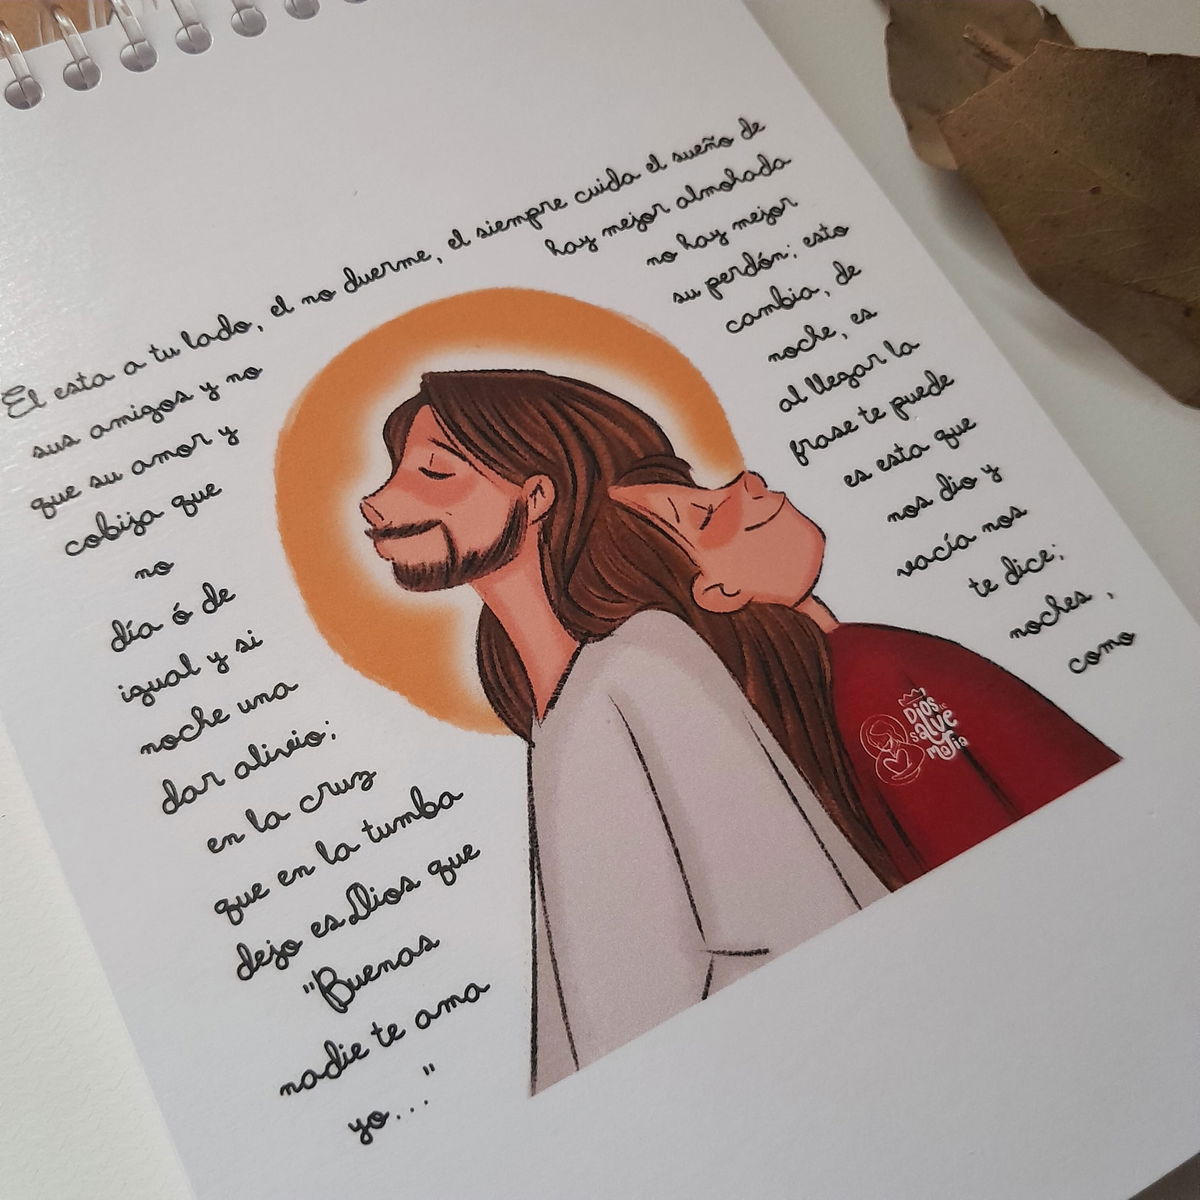 El esta a tu lado, el no duerme, el siempre cuida el sueño de
sus amigos y no hay mejor almohada
que su amor y no hay mejor
cobija que su perdón; esto
no cambia, de
día ó de noche, es
igual y si al llegar la
noche una frase te puede
dar alivio; es esta que
en la cruz nos dio y
que en la tumba vacía nos
dejo es Dios que te dice;
"Buenas noches ,
nadie te ama como
yo..."
Dios te
salve
María